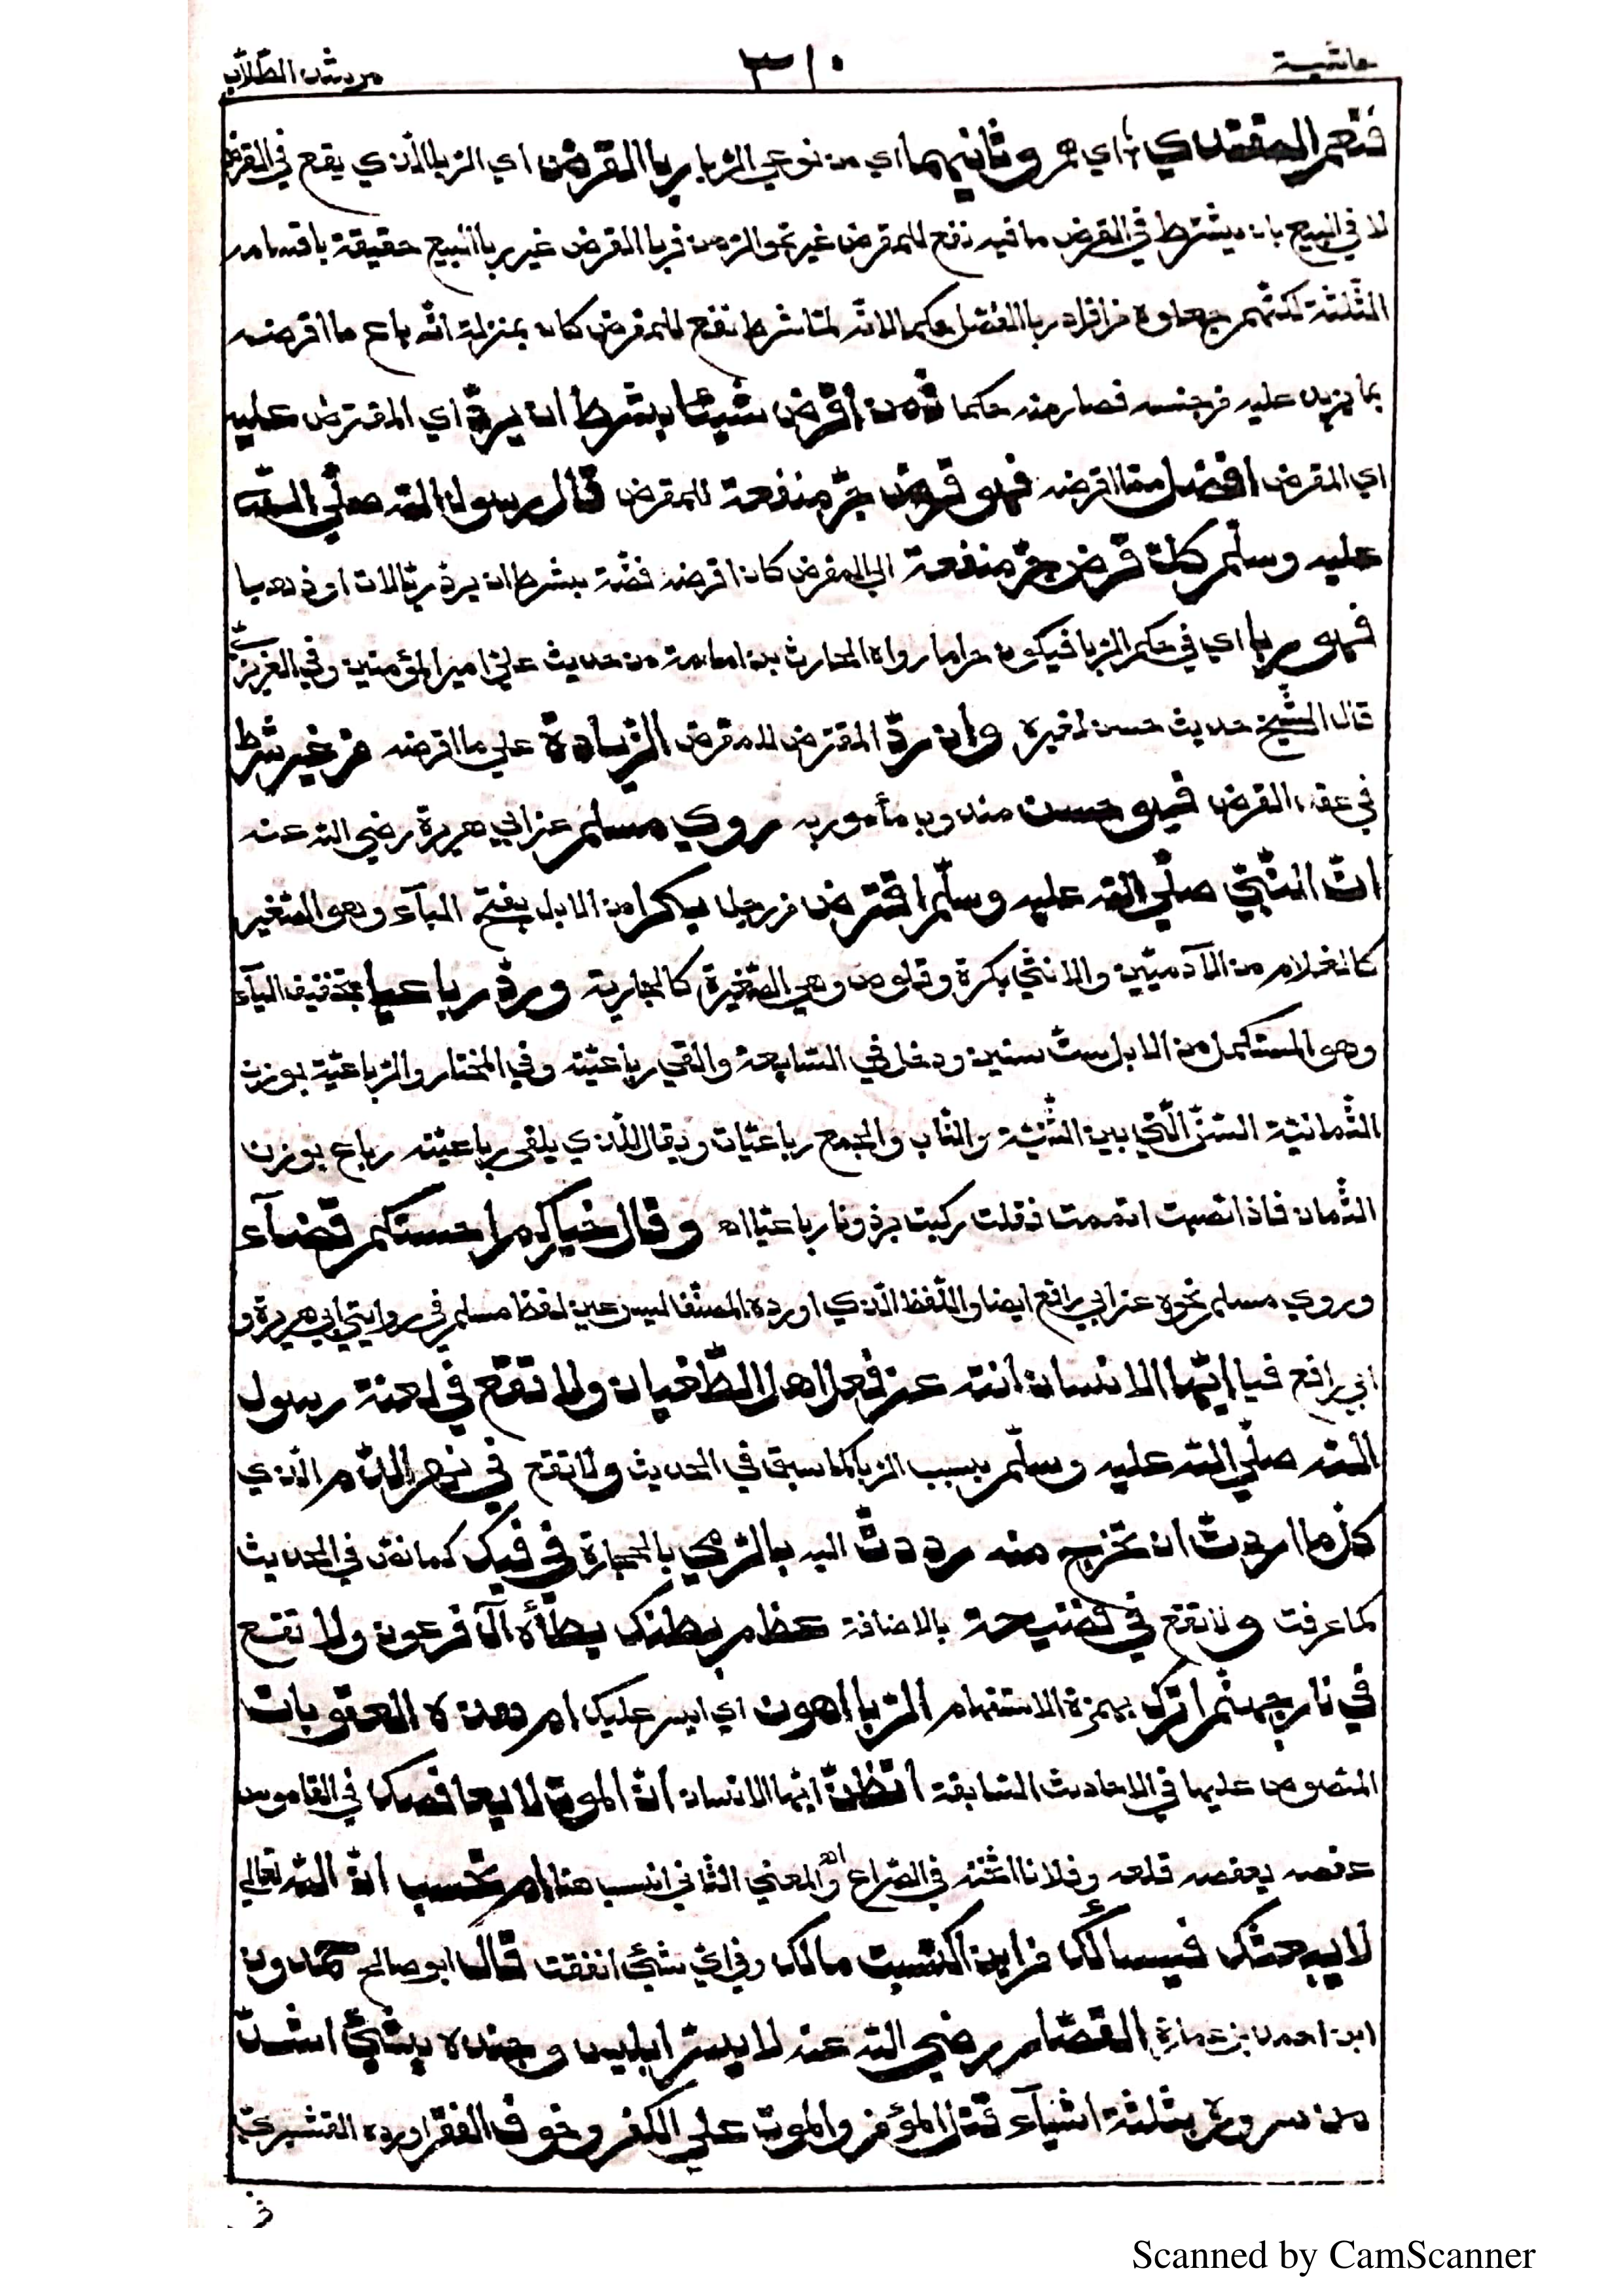 حاشية ٣١٠ مرشد الطلاب
فنعم المقتدي اي هم وثانيهما اي من نوعي الربا ربا القرض اي الربا الذي يقع في القرض
لا في البيع بان يشترط في القرض ما فيه نفع للمقرض غير نحو الرهن فربا القرض غير ربا البيع حقيقة باقسامه
الثلثة لكنهم جعلوه من افراد ربا الفضل حكما لانه لما شرط نفع للمقرض كان بمنزلة انه باع ما اقرضه
بما يزيد عليه من جنسه فصار منه حكما فمن اقرض شيئا بشرط ان يرد اي المقترض عليه
اي المقرض افضل مما اقرضه فهو قرض جر منفعة للمقرض قال رسول الله صلى الله
عليه وسلم كل قرض جر منفعة الى المقرض كان اقرضه فضة بشرط ان يرد ريالات او ذهبا
فهو ربا اي في حكم الربا فيكون حراما رواه الحارث بن اسامة من حديث علي امير المؤمنين وفي العزيزي
قال الشيخ حديث حسن لغيره وان رد المقترض للمقرض الزيادة على ما اقرضه من غير شرط
في عقد القرض فهو حسن مندوب مأمور به روي مسلم عن ابي هريرة رضي الله عنه
ان النبي صلى الله عليه وسلم اقترض من رجل بكرا من الابل بفتح الباء وهو الصغير
كالغلام من الآدميين والانثى بكرة وقلوص وهي الصغيرة كالجارية ورد رباعيا بتخفيف الياء
وهو المستكمل من الابل ست سنين ودخل في السابعة والقي رباعيته وفي المختار والرباعية بوزن
الثمانية السن التي بين الثنية والناب والجمع رباعيات ويقال للذي يلقى رباعيته رباع بوزن
الثمان فاذا نصبت اتممت فقلت ركبت برذونا رباعيا اه وقال خياركم احسنكم قضآء
وروي مسلم نحوه عن ابي رافع ايضا واللفظ الذي اورده المصنف ليس عين لفظ مسلم في روايتي ابي هريرة و
ابي رافع فيا ايها الانسان انته عن فعل اهل الطغيان ولا تقع في لعنة رسول
الله صلى الله عليه وسلم بسبب الربا كما سبق في الحديث ولا تقع في نهر الدم الذي
كل ما اردت ان تخرج منه رددت اليه بالرمي بالحجارة في فيك كما نص في الحديث
كما عرفت ولا تقع في فضيحة بالاضافة عظم بطنك يطأه آل فرعون ولا تقع
في نار جهنم اترك بهمزة الاستفهام الربا اهون اي ايسر عليك ام هذه العقوبات
المنصوص عليها في الاحاديث السابقة اتظن ايها الانسان ان الموت لا يعافصك في القاموس
عفصه يعفصه قلعه وفلانا اثخنه في الصراع اه والمعنى الثاني انسب هنا ام تحسب ان الله تعالى
لا يبعثك فيسألك من اين اكتسبت مالك وفي اي شيئ انفقت قال ابو صالح حمدون
ابن احمد بن عمارة القصار رضي الله عنه لا يسر ابليس وجنده بشيئ اشد
من سروره بثلثة اشيآء قتل المؤمن والموت على الكفر وخوف الفقر اورده القشيري
Scanned by CamScanner